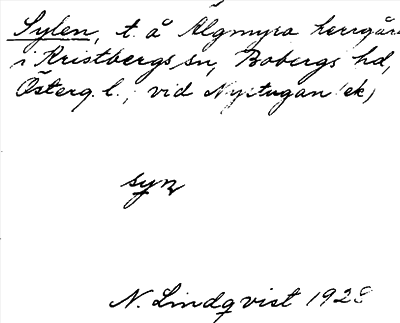 Sylen, t. å Älgmyra herrgård
i Kristbergs sn, Bobergs hd,
Österg. l.; vid Nystugan (ek)
syn
N. Lindqvist 1928